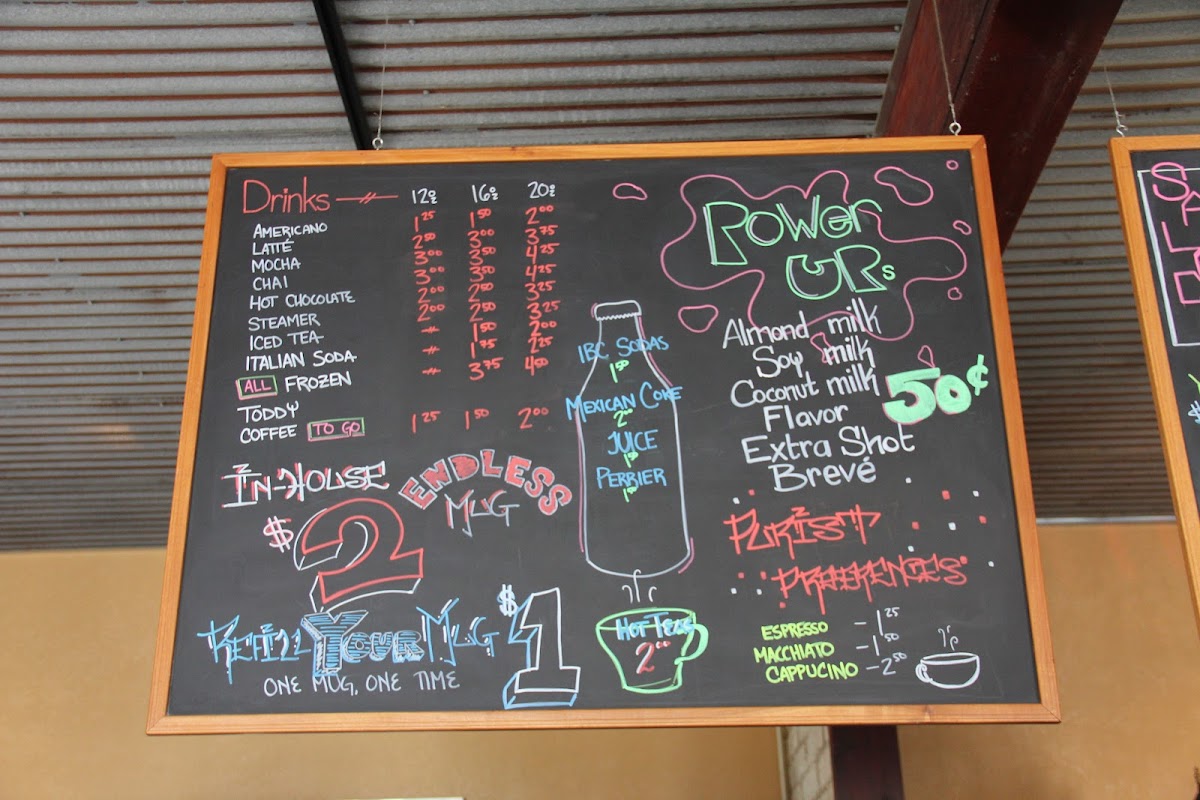 Drinks 12oz 16oz 20oz
AMERICANO 1²⁵ 1⁵⁰ 2⁰⁰
LATTÉ 2⁵⁰ 3⁰⁰ 3⁷⁵
MOCHA 3⁰⁰ 3⁵⁰ 4²⁵
CHAI 3⁰⁰ 3⁵⁰ 4²⁵
HOT CHOCOLATE 2⁰⁰ 2⁵⁰ 3²⁵
STEAMER 2⁰⁰ 2⁵⁰ 3²⁵
ICED TEA 1⁵⁰ 2⁰⁰
ITALIAN SODA 1⁷⁵ 2²⁵
ALL FROZEN 3⁷⁵ 4⁵⁰
TODDY
COFFEE TO GO 1²⁵ 1⁵⁰ 2⁰⁰
IN-HOUSE
$2
ENDLESS
MUG
REFILL YOUR MUG $1
ONE MUG, ONE TIME
IBC SODAS
1⁵⁰
MEXICAN COKE
2⁰⁰
JUICE
1⁵⁰
PERRIER
1⁵⁰
HOT TEAS
2⁰⁰
POWER
UPs
Almond milk
Soy milk
Coconut milk 50¢
Flavor
Extra Shot
Brevé
PURIST
PREFERENCES
ESPRESSO - 1²⁵
MACCHIATO - 1⁵⁰
CAPPUCINO - 2⁵⁰